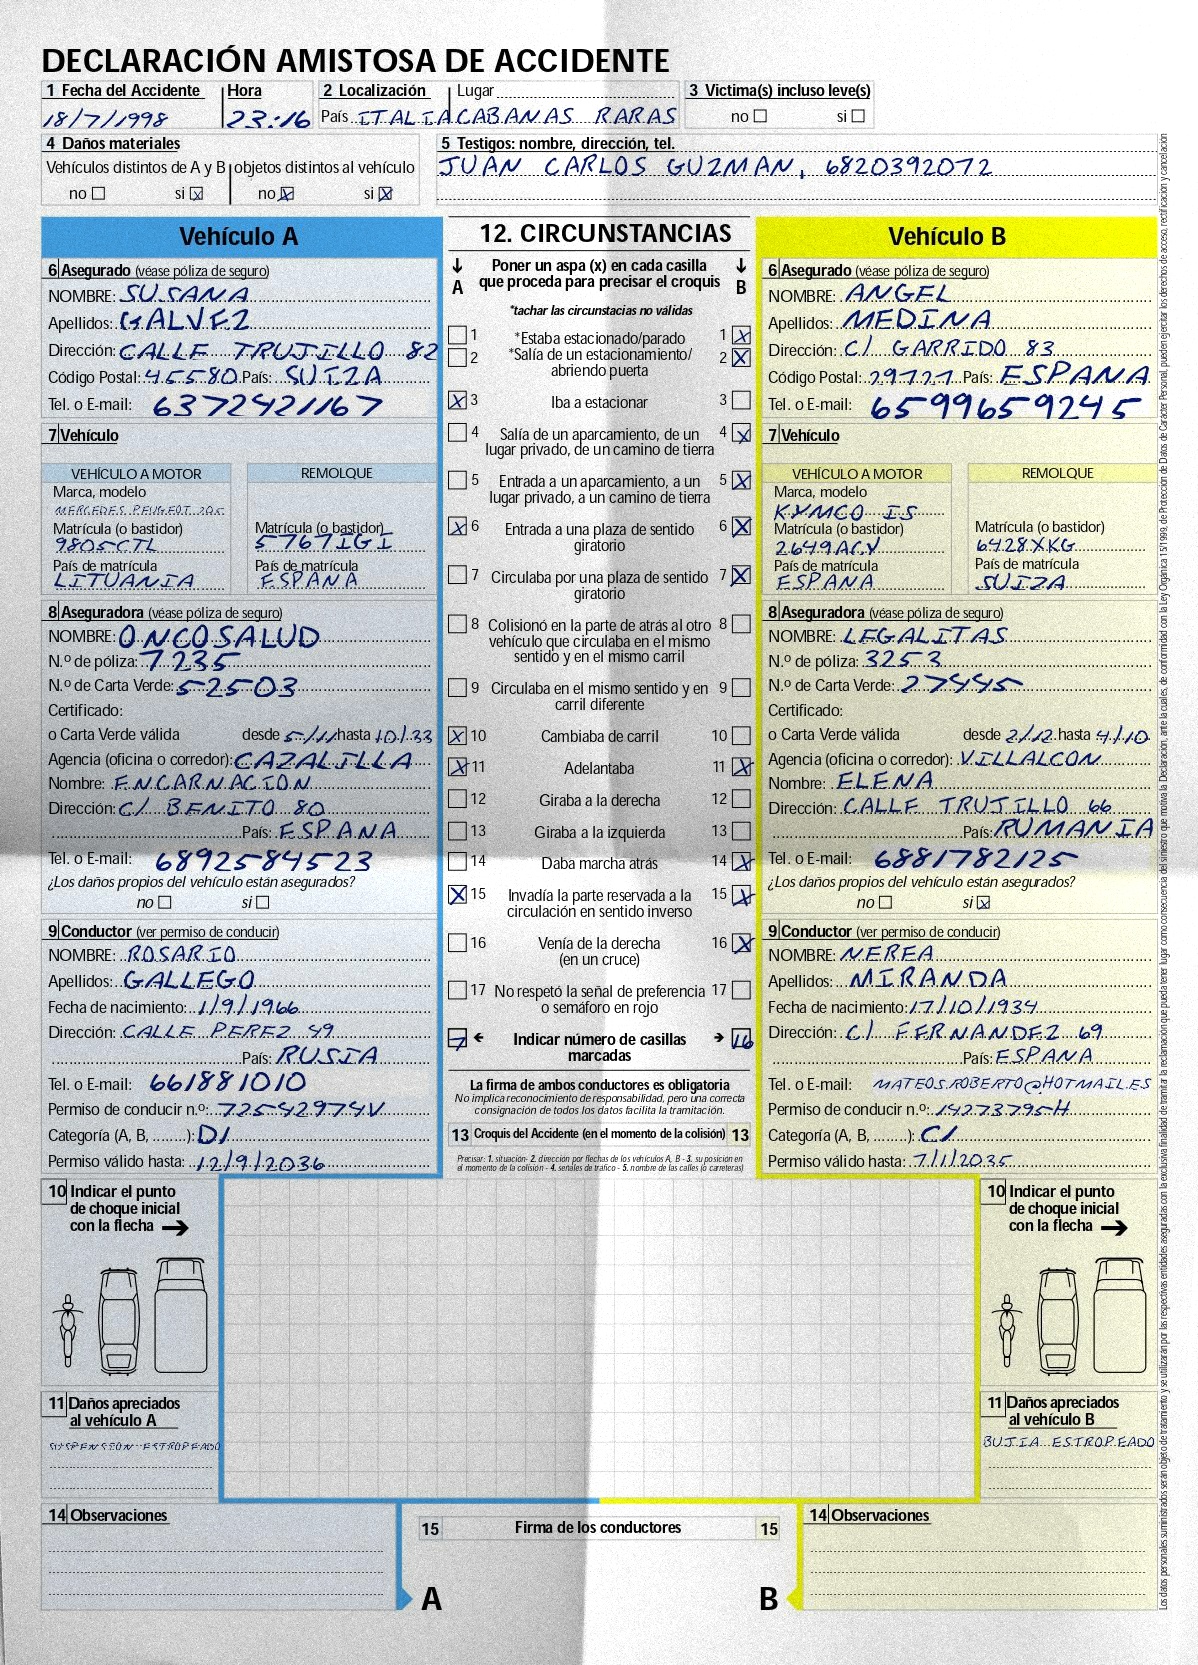 DECLARACIÓN AMISTOSA DE ACCIDENTE
1 Fecha del Accidente Hora 2 Localización Lugar 3 Victima(s) incluso leve(s)
18/7/1998 23:16 País ITALIA CABANAS RARAS no si
4 Daños materiales
Vehículos distintos de A y B objetos distintos al vehículo
no si X no X si X
5 Testigos: nombre, dirección, tel.
JUAN CARLOS GUZMAN, 6820392072
Vehículo A
6 Asegurado (véase póliza de seguro)
NOMBRE: SUSANA
Apellidos: GALVEZ
Dirección: CALLE TRUJILLO 82
Código Postal: 45580 País: SUIZA
Tel. o E-mail: 6372421167
7 Vehículo
VEHÍCULO A MOTOR REMOLQUE
Marca, modelo
MERCEDES PEUGEOT 205
Matrícula (o bastidor) Matrícula (o bastidor)
9805CTL 5767IGI
País de matrícula País de matrícula
LITUANIA ESPANA
8 Aseguradora (véase póliza de seguro)
NOMBRE: ONCOSALUD
N.º de póliza: 7235
N.º de Carta Verde: 52503
Certificado:
o Carta Verde válida desde 5/11 hasta 10/33
Agencia (oficina o corredor): CAZALILLA
Nombre: ENCARNACION
Dirección: C/ BENITO 80
País: ESPANA
Tel. o E-mail: 6892584523
¿Los daños propios del vehículo están asegurados?
no si
9 Conductor (ver permiso de conducir)
NOMBRE: ROSARIO
Apellidos: GALLEGO
Fecha de nacimiento: 1/9/1966
Dirección: CALLE PEREZ 49
País: RUSIA
Tel. o E-mail: 661881010
Permiso de conducir n.º: 72542974V
Categoría (A, B, ........): D1
Permiso válido hasta: 12/9/2036
12. CIRCUNSTANCIAS
A Poner un aspa (x) en cada casilla que proceda para precisar el croquis B
*tachar las circunstacias no válidas
1 *Estaba estacionado/parado 1 X
2 *Salía de un estacionamiento/ 2 X
abriendo puerta
X 3 Iba a estacionar 3
4 Salía de un aparcamiento, de un 4 X
lugar privado, de un camino de tierra
5 Entrada a un aparcamiento, a un 5 X
lugar privado, a un camino de tierra
X 6 Entrada a una plaza de sentido 6 X
giratorio
7 Circulaba por una plaza de sentido 7 X
giratorio
8 Colisionó en la parte de atrás al otro 8
vehículo que circulaba en el mismo
sentido y en el mismo carril
9 Circulaba en el mismo sentido y en 9
carril diferente
X 10 Cambiaba de carril 10
X 11 Adelantaba 11 X
12 Giraba a la derecha 12
13 Giraba a la izquierda 13
14 Daba marcha atrás 14 X
X 15 Invadía la parte reservada a la 15 X
circulación en sentido inverso
16 Venía de la derecha 16 X
(en un cruce)
17 No respetó la señal de preferencia 17
o semáforo en rojo
7 Indicar número de casillas 16
marcadas
La firma de ambos conductores es obligatoria
No implica reconocimiento de responsabilidad, pero una correcta
consignación de todos los datos facilita la tramitación.
13 Croquis del Accidente (en el momento de la colisión) 13
Precisar: 1. situación- 2. dirección por flechas de los vehículos A, B - 3. su posición en
el momento de la colisión - 4. señales de tráfico - 5. nombre de las calles (o carreteras)
Vehículo B
6 Asegurado (véase póliza de seguro)
NOMBRE: ANGEL
Apellidos: MEDINA
Dirección: C/ GARRIDO 83
Código Postal: 29727 País: ESPANA
Tel. o E-mail: 6599659245
7 Vehículo
VEHÍCULO A MOTOR REMOLQUE
Marca, modelo
KYMCO IS
Matrícula (o bastidor) Matrícula (o bastidor)
2649ACV 6428XKG
País de matrícula País de matrícula
ESPANA SUIZA
8 Aseguradora (véase póliza de seguro)
NOMBRE: LEGALITAS
N.º de póliza: 3253
N.º de Carta Verde: 27445
Certificado:
o Carta Verde válida desde 2/12 hasta 4/10
Agencia (oficina o corredor): VILLALCON
Nombre: ELENA
Dirección: CALLE TRUJILLO 66
País: RUMANIA
Tel. o E-mail: 6881782125
¿Los daños propios del vehículo están asegurados?
no si X
9 Conductor (ver permiso de conducir)
NOMBRE: NEREA
Apellidos: MIRANDA
Fecha de nacimiento: 17/10/1934
Dirección: C/ FERNANDEZ 69
País: ESPANA
Tel. o E-mail: MATEOS.ROBERTO@HOTMAIL.ES
Permiso de conducir n.º: 14273795H
Categoría (A, B, ........): C1
Permiso válido hasta: 7/1/2035
10 Indicar el punto
de choque inicial
con la flecha
11 Daños apreciados
al vehículo A
SUSPENSION ESTROPEADO
10 Indicar el punto
de choque inicial
con la flecha
11 Daños apreciados
al vehículo B
BUJIA ESTROPEADO
14 Observaciones
15 Firma de los conductores 15
A B
14 Observaciones
Los datos personales suministrados serán objeto de tratamiento y se utilizarán por las respectivas entidades aseguradas con la exclusiva finalidad de tramitar la reclamación que pueda tener lugar como consecuencia del siniestro que motiva la Declaración, ante la cuales, de conformidad con la Ley Orgánica 15/1999, de Protección de Datos de Carácter Personal, pueden ejercitar los derechos de acceso, rectificación y cancelación